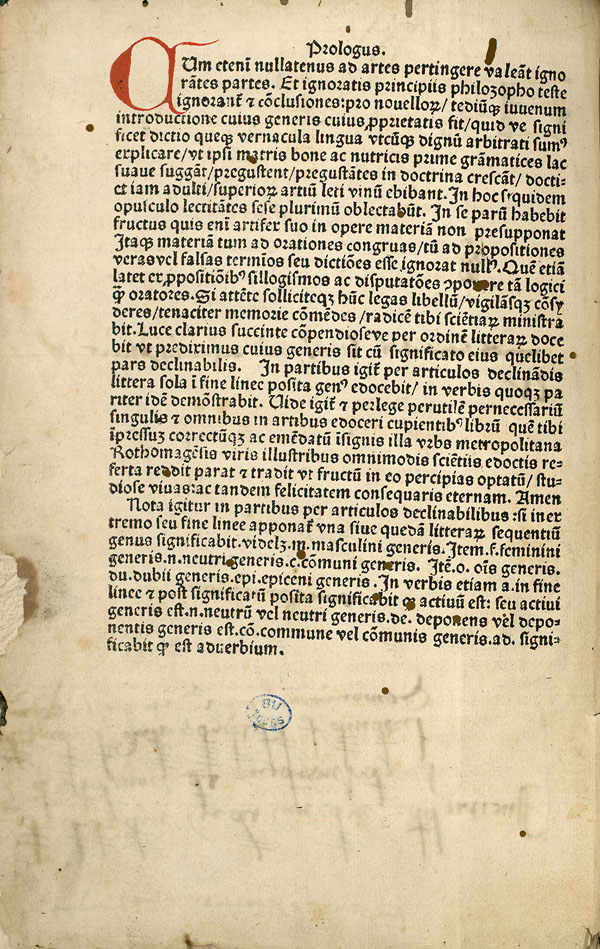 Prologus.
CUm etenī nullatenus ad artes pertingere valeāt igno
rātes partes. Et ignoratis principiis philozopho teste
ignorant̄ ⁊ cōclusiones:pro novelloꝝ/ tediūqꝫ iuvenum
introductione cuius generis cuius ꝓprietatis sit/quid ve signi
ficet dictio queqꝫ vernacula lingua vtcūqꝫ dignū arbitrati sumꝰ
explicare/vt ipsi matris bone ac nutricis prime grāmatices lac
suave suggāt/pregustent/pregustātes in doctrina crescāt/ docti-
et iam adulti/superioꝝ artiū leti vinū ebibant. In hoc siquidem
opusculo lectitātes sese plurimū oblectabūt. In se parū habebit
fructus quis enī artifex suo in opere materiā non presupponat
Itaqꝫ materiā tum ad orationes congruas/tū ad propositiones
veras vel falsas termīos seu dictiōes esse ignorat nullꝰ. Quē etiā
latet ex ꝓppositiōibꝰ sillogismos ac disputatōes ꝯponere tā logici
qꝫ oratores. Si attēte solliciteqꝫ hūc legas libellū/vigilāsqꝫ cōsy
deres/tenaciter memorie cōmēdes/radicē tibi sciētiaꝝ ministra
bit. Luce clarius succinte cōpendioseve per ordinē litteraꝝ doce
bit vt prediximus cuius generis sit cū significato eius quelibet
pars declinabilis. In partibus igit̄ per articulos declināndis
littera sola ī fine linee posita genꝰ edocebit/ in verbis quoqꝫ pa
riter idē demōstrabit. Vide igit̄ ⁊ perlege perutilē pernecessariū
singulis ⁊ omnibus in artibus edoceri cupientibꝰ librū quē tibi
īpressuꝫ correctūqꝫ ac emēdatū īsignis illa vrbs metropolitana
Rothomagēsis viris illustribus omnimodis sciētiis edoctis re-
ferta reddit parat ⁊ tradit vt fructū in eo percipias optatū/ stu-
diose vivas:ac tandem felicitatem consequaris eternam. Amen
Nota igitur in partibus per articulos declinabilibus :si in ex
tremo seu fine linee apponat̄ vna sive quedā litteraꝝ sequentiū
genus significabit.videlꝫ.m.masculini generis.Item.f.feminini
generis.n.neutri generis.c.cōmuni generis. Itē.o. oīs generis.
du.dubii generis.epi.epiceni generis. In verbis etiam a.in fine
linee ⁊ post significatū posita significabit qꝫ activū est: seu activi
generis est.n.neutrū vel neutri generis.de. deponens vel depo-
nentis generis est.cō.commune vel cōmunis generis.ad. signi-
ficabit qꝫ est adverbium.